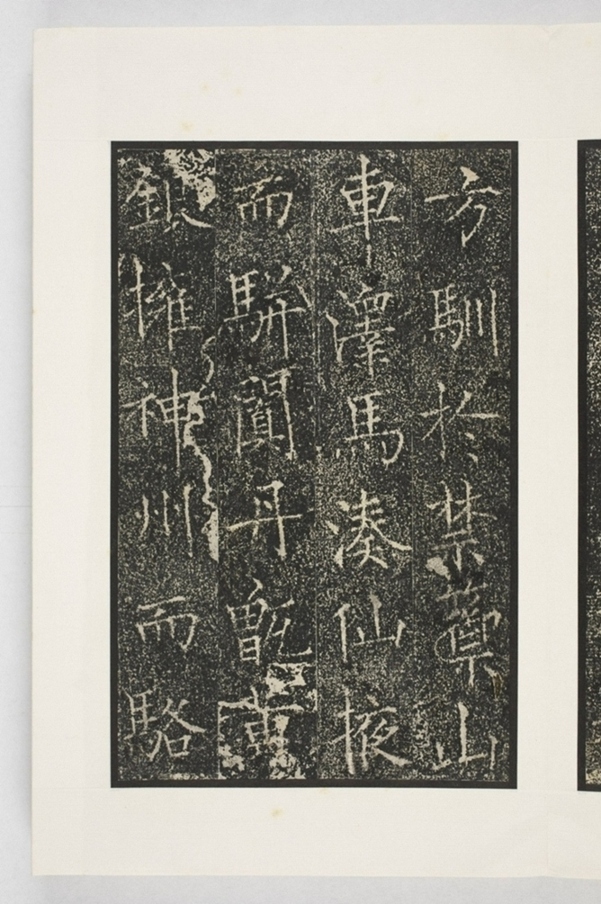 方馴於禁籞山
車澤馬湊仙掖
而駢闐丹甑黃
銀擁神州而駱